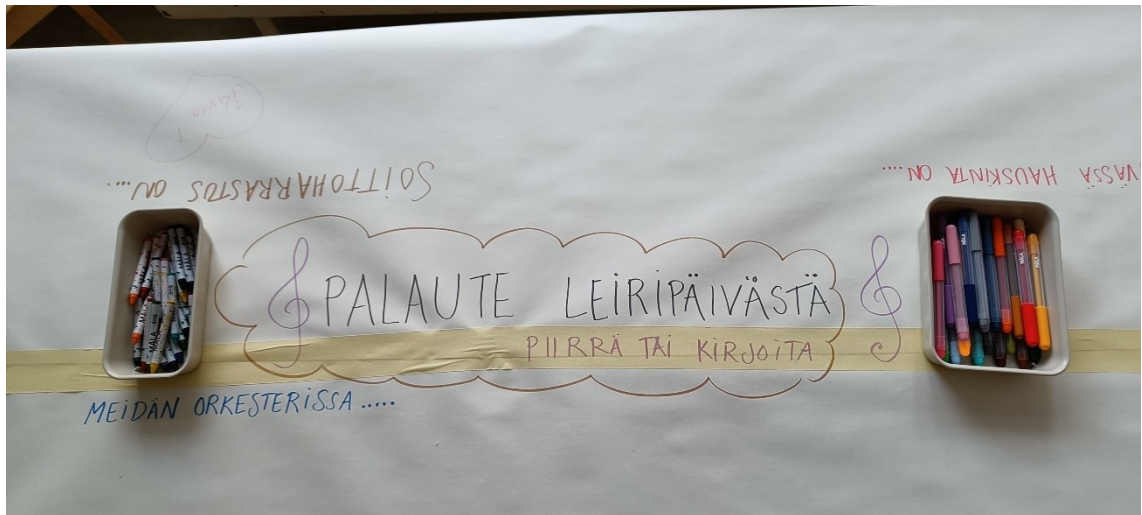 Kivaa!
SOITTOHARRASTUS ON.....
VÄSSÄ HAUSKINTA ON.....
PALAUTE LEIRIPÄIVÄSTÄ
PIIRRÄ TAI KIRJOITA
MEIDÄN ORKESTERISSA.....